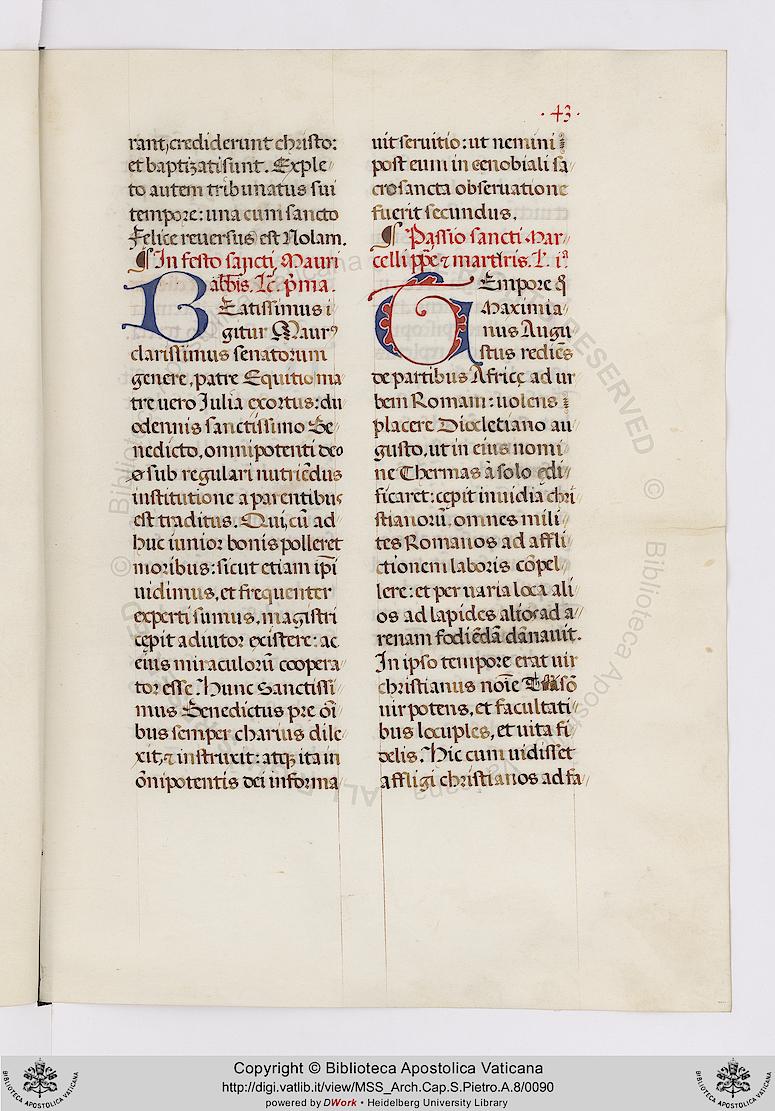 ·43·
rant, crediderunt christo:
et baptizati sunt. Exple
to autem tribunatus sui
tempore: una cum sancto
Felice reuersus est Nolam.
¶ In festo sancti Mauri
abb̄is. Lc̄. p̄ma.
BEatissimus i
gitur Maurꝰ
clarissimus senatorum
genere, patre Equitio ma
tre uero Iulia exortus: du
odennis sanctissimo Be
nedicto, omnipotenti deo
sub regulari nutriēdus
institutione a parentibus
est traditus. Qui, cū ad
huc iunior bonis polleret
moribus: sicut etiam ip̄i
uidimus, et frequenter
experti sumus. magistri
cępit adiutor existere: ac
eius miraculorū coopera
tor esse. Hunc Sanctissi
mus Benedictus pre oī
bus semper charius dile
xit, ⁊ instruxit: atqꝫ ita in
ōnipotentis dei informa
uit seruitio: ut nemini
post eum in cenobiali sa
crosancta obseruatione
fuerit secundus.
¶ Passio sancti Mar
celli pp̄e ⁊ martiris. L. iᵃ
TEmpore q̄
Maximia
nus Augu
stus rediēs
de partibus Africę ad ur
bem Romam: uolens
placere Diocletiano au
gusto, ut in eius nomi
ne Thermas a solo ędi
ficaret: cępit inuidia chri
stianorū, omnes mili
tes Romanos ad affli
ctionem laboris cōpel
lere: et per uaria loca ali
os ad lapides alios ad a
renam fodiēdā dānauit.
In ipso tempore erat uir
christianus noīe Trasō
uir potens, et facultati
bus locuples, et uita fi
delis. Hic cum uidisset
affligi christianos ad fa
Copyright © Biblioteca Apostolica Vaticana
http://digi.vatlib.it/view/MSS_Arch.Cap.S.Pietro.A.8/0090
powered by DWork • Heidelberg University Library
BIBLIOTECA APOSTOLICA VATICANA
BIBLIOTECA APOSTOLICA VATICANA